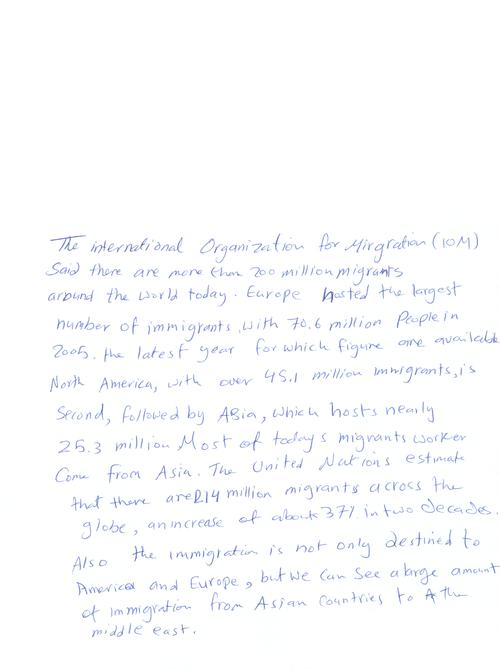 The international Organization for Mirgration (IOM)
Said there are more than 200 million migrants
around the world today. Europe hosted the largest
number of immigrants, with 70.6 million People in
2005. the latest year for which figure are available
North America, with over 45.1 million immigrants, is
Second, followed by Asia, which hosts nearly
25.3 million Most of today's migrants worker
Come from Asia. The United Nations estimate
that there are 214 million migrants across the
globe, an increase of about 37% in two decades.
Also the immigration is not only destined to
America and Europe, but we can see a large amount
of immigration from Asian Countries to the
middle east.